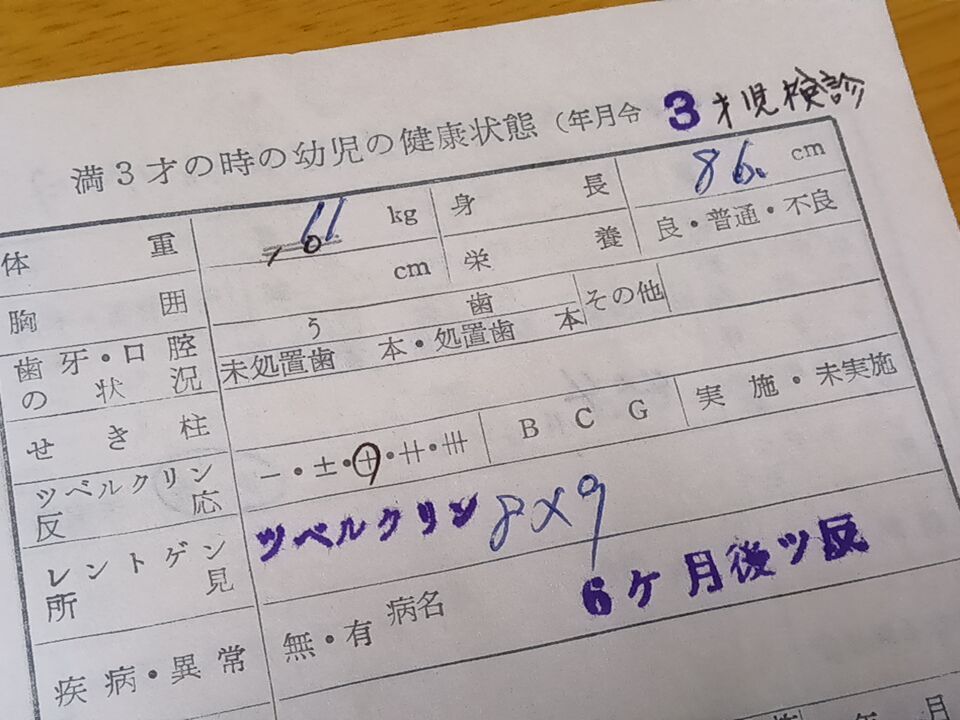 満3才の時の幼児の健康状態(年月令 3才児検診
体重 11.0 kg 身長 86. cm
胸囲 cm 栄養 良・普通・不良
歯牙・口腔の状況 う歯 その他
未処置歯 本・処置歯 本
せき柱
ツベルクリン反応 −・±・+・++・+++ BCG 実施・未実施
レントゲン所見 ツベルクリン 8×9
6ケ月後ツ反
疾病・異常 無・有 病名
年 月